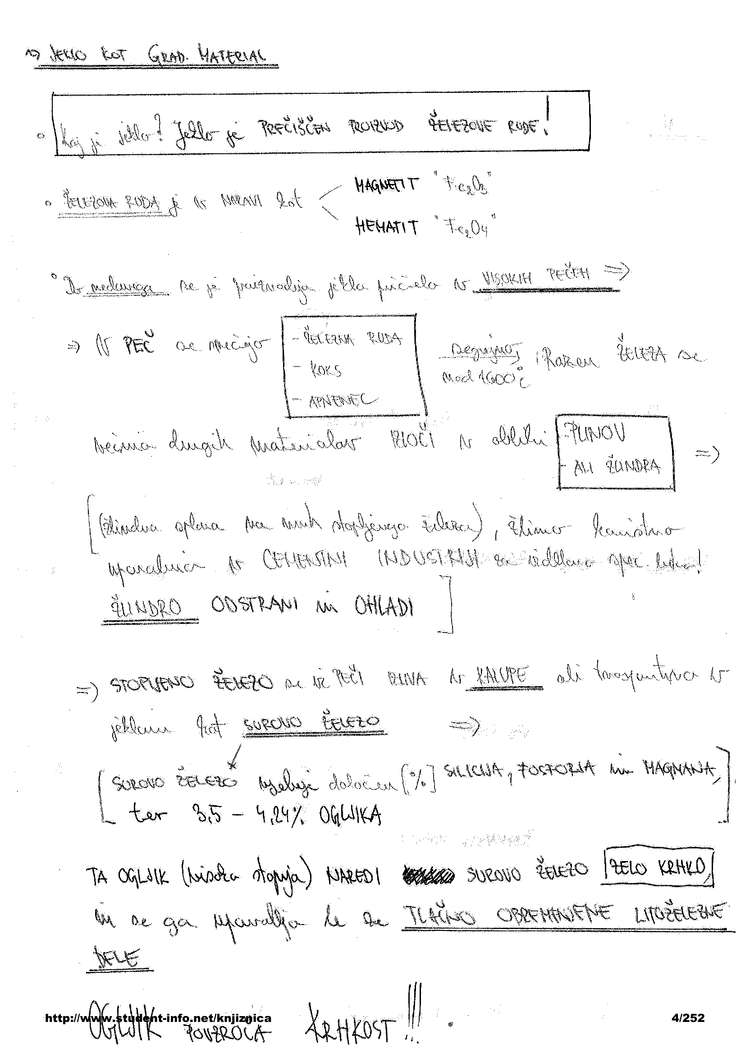 JEKLO KOT GRAD. MATERIAL
° Kaj je jeklo? Jeklo je PREČIŠČEN PROIZVOD ŽELEZOVE RUDE!
° ŽELEZOVA RUDA je v NARAVI kot
MAGNETIT "Fe2O3"
HEMATIT "Fe2O4"
° Do nedavnega se je proizvodnja jekla pričela v VISOKIH PEČEH =>
=> V PEČ se mečejo
- ŽELEZNA RUDA
- KOKS
- APNENEC
segrejejo, nad 1600°C ; Razen ŽELEZA se
večina drugih materialov IZLOČI v obliki
- PLINOV
- ALI ŽLINDRA
=>
[(žlindra plava na vrhu stopljenega železa), žlindro koristno
uporabimo v CEMENTNI INDUSTRIJI za izdelavo spec.
ŽLINDRO ODSTRANI in OHLADI ]
=> STOPLJENO ŽELEZO se iz PEČI IZLIVA V KALUPE ali transportira v
jeklarn kot SUROVO ŽELEZO =>
[ SUROVO ŽELEZO vsebuje določen [%] SILICIJA, FOSFORJA in MAGNANA,
ter 3,5 - 4,24% OGLJIKA ]
TA OGLJIK (visoka stopnja) NAREDI SUROVO ŽELEZO ZELO KRHKO,
in se ga uporablja le za TLAČNO OBREMENJENE LITOŽELEZNE
DELE
OGLJIK POVZROČA KRHKOST!!!
http://www.student-info.net/knjiznica
4/252